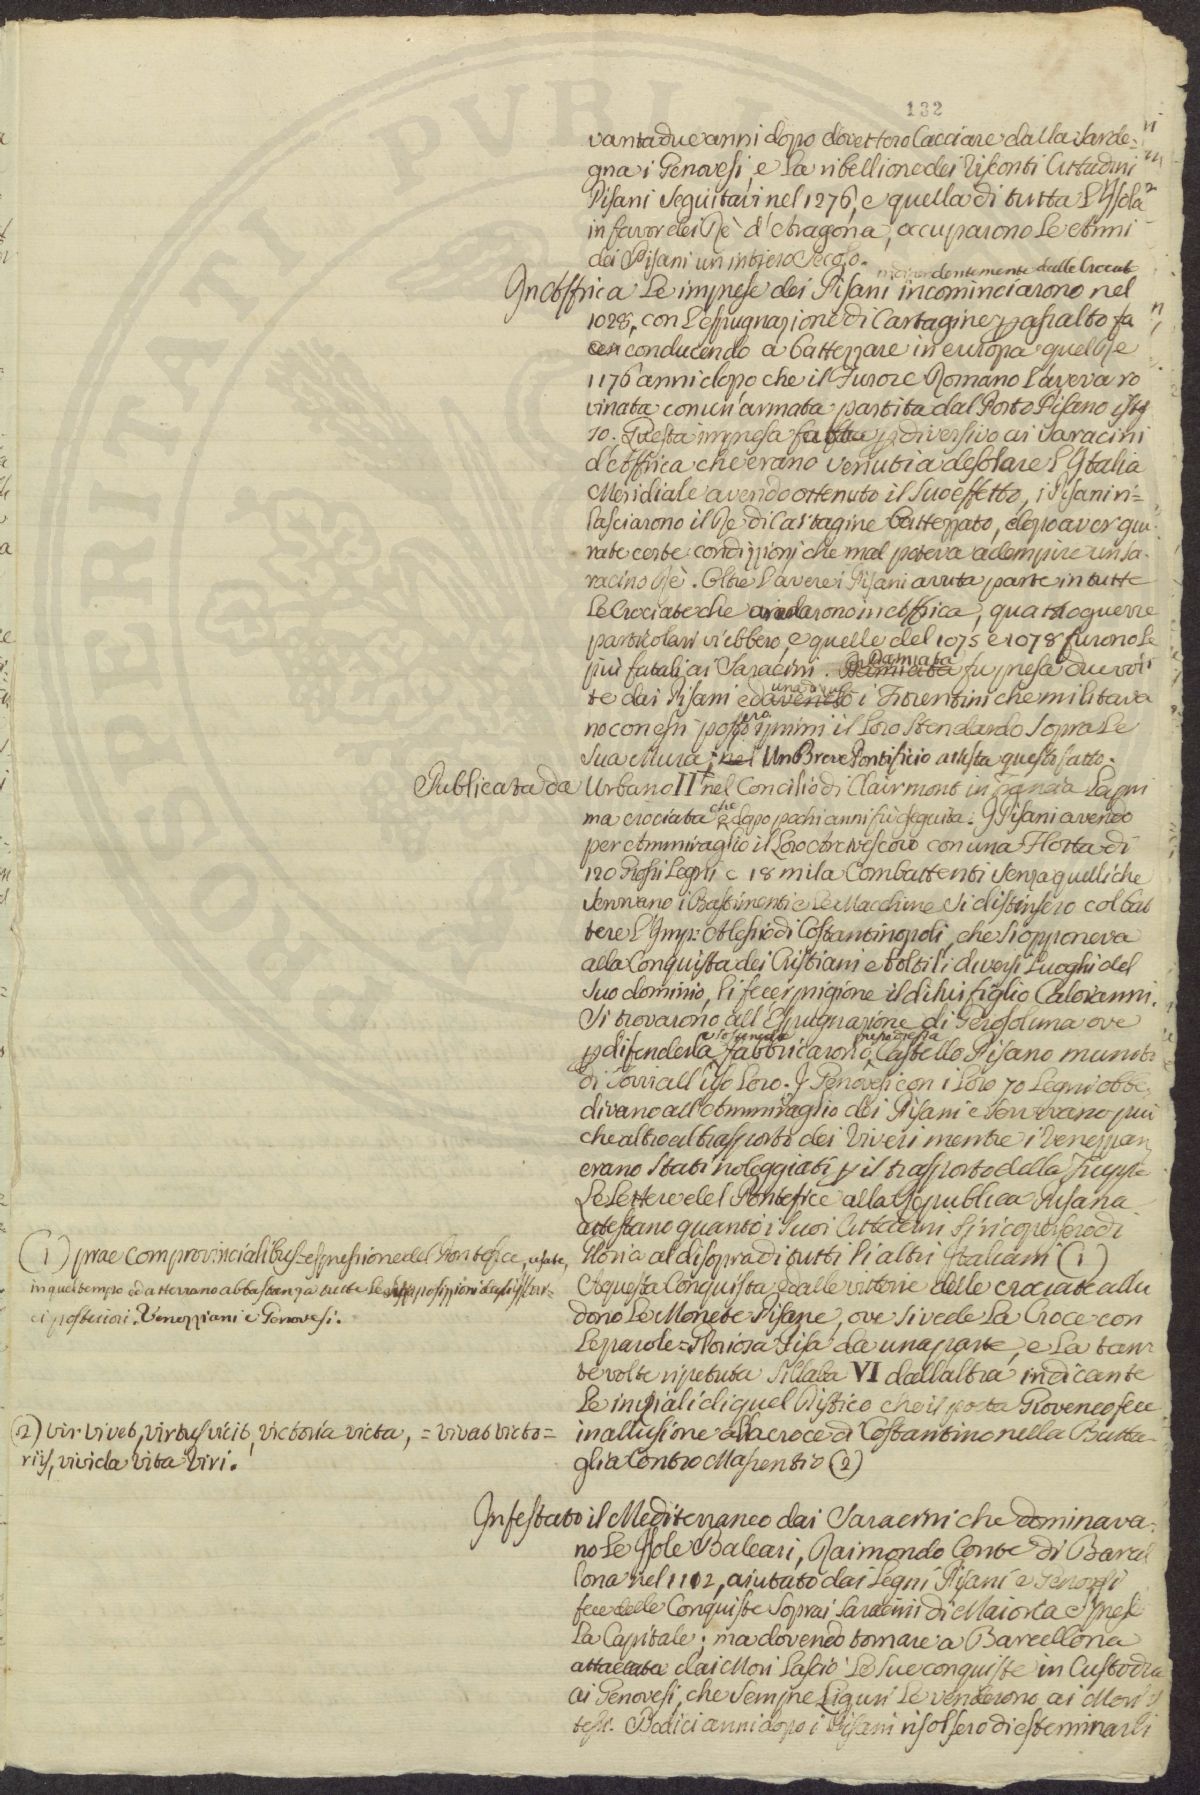 132
vantadue anni dopo dovettero Cacciare dalla Sarde=
gna i Genovesi, e la ribellione dei Visconti Cittadini
Pisani Seguitavi nel 1276, e quella di tutta l'Isola
in favor dei Rè d'Aragona, occuparono le Armi
dei Pisani un intiero Secolo.
indipendentemente dalle Crociate
In Affrica le imprese dei Pisani incominciarono nel
1028, con l'espugnazione di Cartagine p assalto fa
cen conducendo a battezzare in europa quel Re
1176 anni dopo che il Furore Romano l'aveva ro
vinata con un'armata partita dal Porto Pisano
so. Questa impresa fatta p diversivo ai Saracini
d'Affrica che erano venuti a desolare l'Italia
Meridiale avendo ottenuto il Suo effetto, i Pisani ri=
lasciarono il Re di Cartagine battezzato, dopo aver giu
rate certe condizzioni che mal poteva adempire un Sa
racino Rè. Oltre l'avere i Pisani avuta parte in tutte
le Crociate che andarono in Affrica, quattro guerre
particolari vi ebbero, e quelle del 1075 e 1078 furono le
più fatali ai Saracini. Damiata Damiata fu presa due vol
te dai Pisani ed avendo una di queste i Fiorentini che militava
no con essi possero era i primi il Loro Stendardo Sopra le
Sue Mura; nel Un Breve Pontificio attesta questo fatto.
Publicata da Urbano II nel Concilio di Clairmont in Francia la pri
ma crociata che e dopo pochi anni fù Seguita. I Pisani avendo
per Ammiraglio il Loro Arcivescovo con una Flotta di
120 Grossi Legni e 18 mila Combattenti Senza quelli che
Servivano i Bastimenti e le Macchine Si distinsero col bat
tere l'Imp: Alessio di Costantinopoli, che Si opponeva
alla Conquista dei Cristiani e toltili diversi Luoghi del
Suo dominio, li fecer prigione il di lui figlio Calojanni.
Si trovarono all'Espugnazione di Gerosolima ove
p difenderla e sostenerla fabbricarono presso questa Castello Pisano munito
di Torri all'uso Loro. I Genovesi con i Loro 70 Legni obbe
divano all'Ammiraglio dei Pisani e Servivano più
che altro al trasporto dei Viveri mentre i Venezzian
erano Stati noleggiati p il trasporto della Truppa
Le Lettere del Pontefice alla Republica Pisana
attestano quanto i Suoi Cittadini Si ricoprissero di
Gloria al di sopra di tutti li altri Italiani (1)
A questa Conquista e dalle vittorie delle crociate allu
dono le Monete Pisane, ove si vede la Croce con
le parole = Gloriosa Pisa da una parte, e la tan
te volte ripetuta Sillaba VI dall'altra indicante
le iniziali di quel Distico che il poeta Provenco fece
in allusione alla croce di Costantino nella Batta
glia Contro Masentio (2)
(1) prae comprovincialibus espressione del Pontefice, usata,
in quel tempo ed atterrano abbastanza tutte le supposizzioni degli Stori=
ci posteriori. Venezziani e Genovesi.
(2) vir vivet, virtus vicit, victoria victa, = vivat victo=
riis, vivida vita Viri.
Infestato il Mediterraneo dai Saracini che dominava
no le Isole Baleari, Raimondo Conte di Barcel
lona nel 1102, aiutato dai Legni Pisani e Genovesi
fece delle Conquiste Sopra i Saracini di Maiorca e prese
la Capitale; ma dovendo tornare a Barcellona
attaccata dai Mori Lasciò le Sue conquiste in Custodia
ai Genovesi, che Sempre Liguri le venderono ai Mori S
tessi. Dodici anni dopo i Pisani risolsero di esterminarli